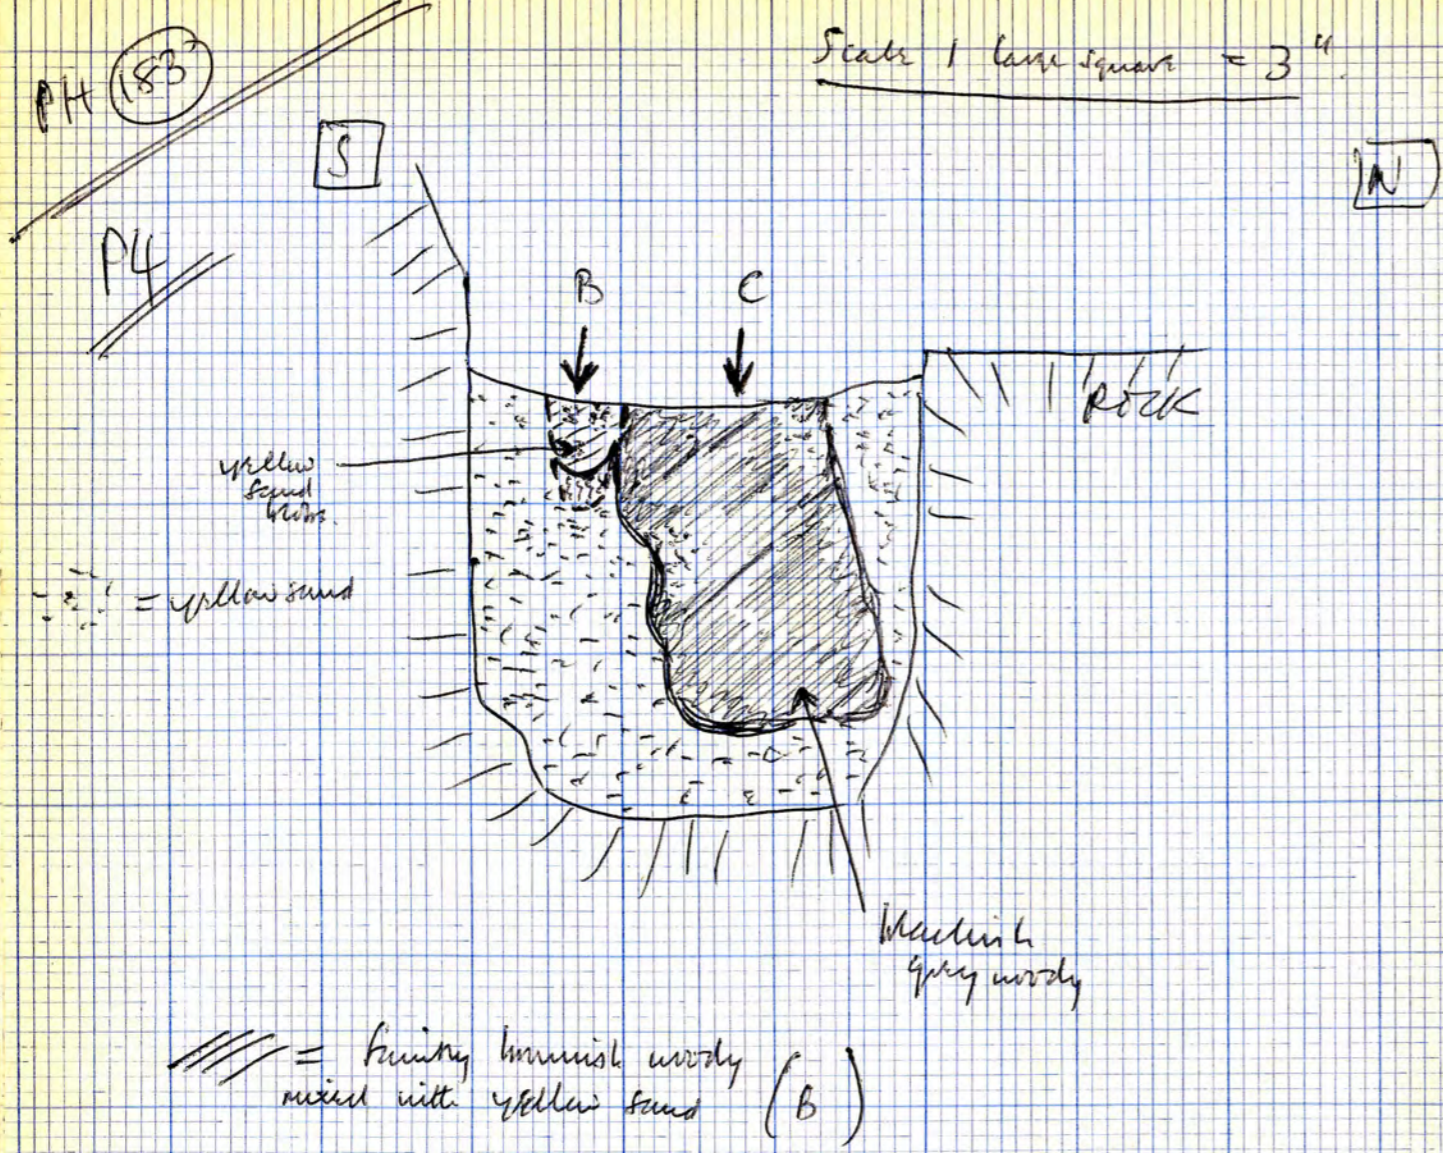 PH 183
Scale 1 large square = 3"
S
N
P4
B
C
ROCK
yellow
sand
= yellow sand
blackish
grey woody
= faintly brownish woody
mixed with yellow sand (B)